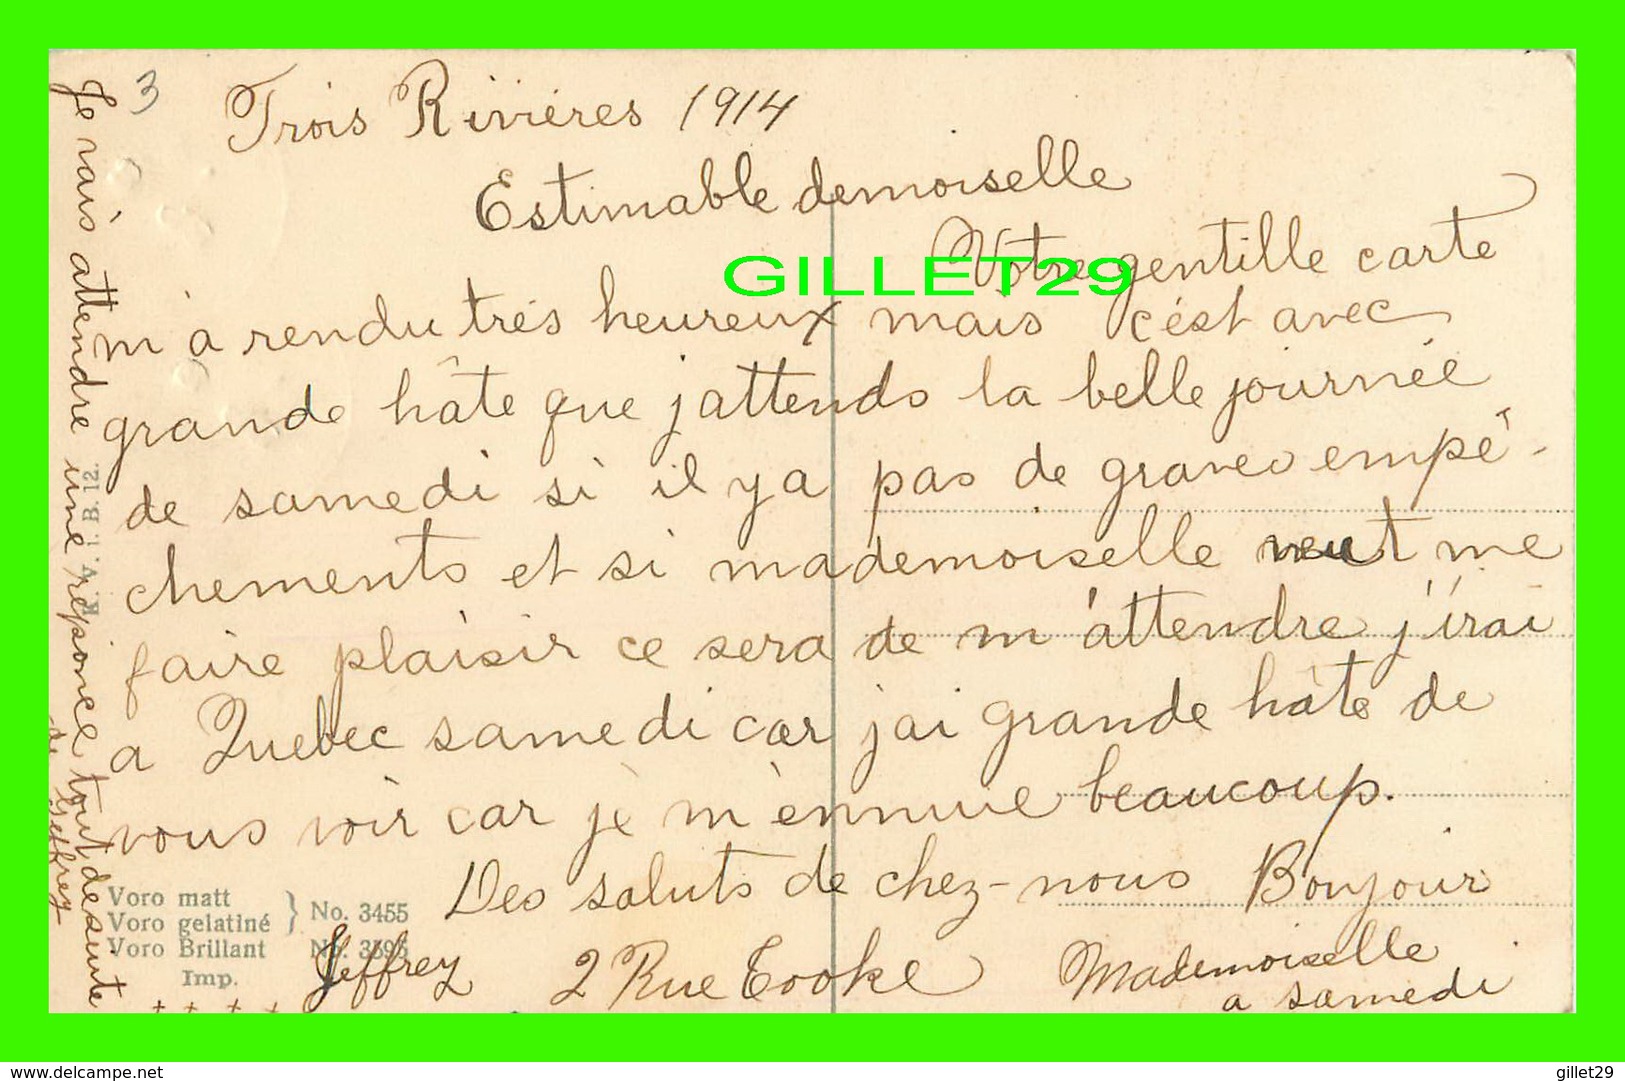 3
Trois Rivières 1914
Estimable demoiselle
Votre gentille carte
GILLET29
m'a rendu très heureux mais c'ést avec
grande hâte que j'attends la belle journée
de samedi si il y a pas de graves empê-
chements et si mademoiselle veut me
faire plaisir ce sera de m'attendre j'irai
a Quebec samedi car j'ai grande hâte de
vous voir car je m'ennuie beaucoup.
Des saluts de chez-nous Bonjour
Jeffrey 2 Rue Tooke Mademoiselle
a samedi
Je vais attendre une réponce tout de suite
de Jeffrey
K. V. i. B. 12.
Voro matt
Voro gelatiné } No. 3455
Voro Brillant No. 3395
Imp.
+ + + +
www.delcampe.net
gillet29